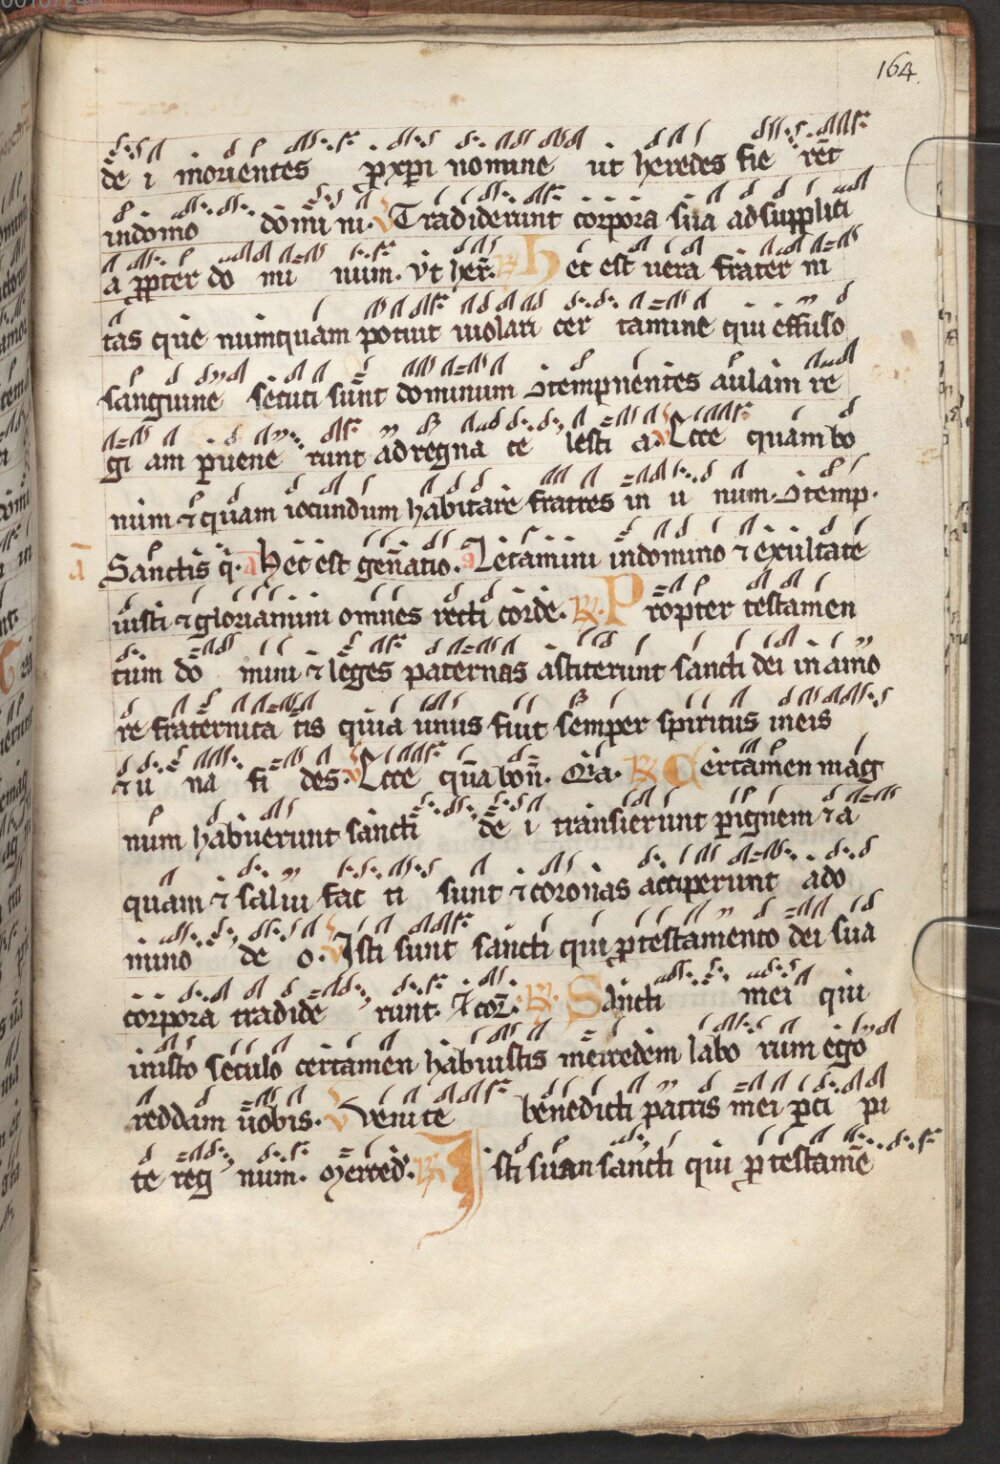 164
de i morientes p xpi nomine ut heredes fie rēt
indomo domi ni. V Tradiderunt corpora sua adsuppliti
a ppter do mi num. Vt her̄. R Hec est uera frater ni
tas que numquam potuit uiolari cer tamine qui effuso
sanguine secuti sunt dominum ɔtempnentes aulam re
gi am puene runt adregna ce lesti a. V Ecce quam bo
num ⁊ quam iocundum habitare fratres in u num. ɔtemp.
a Sanctis q̄. a Hec est geñatio. a Letamini indomino ⁊ exultate
iusti ⁊ gloriamini omnes recti corde. R. Propter testamen
tum do mini ⁊ leges paternas astiterunt sancti dei in amo
re fraternita tis quia unus fuit semper spiritus ineis
⁊ u na fi des. V Ecce quā boñ. Gła. R Certamen mag
num habuerunt sancti de i transierunt p ignem ⁊ a
quam ⁊ salui fac ti sunt ⁊ coronas acciperunt ado
mino de o. V Isti sunt sancti qui p testamento dei sua
corpora tradide runt. ⁊ cor̄. R. Sancti mei qui
inisto seculo certamen habuistis mercedem labo rum ego
reddam uobis. V Venite benedicti patris mei pci pi
te reg num. Merced. R Isti sunt sancti qui p testamē